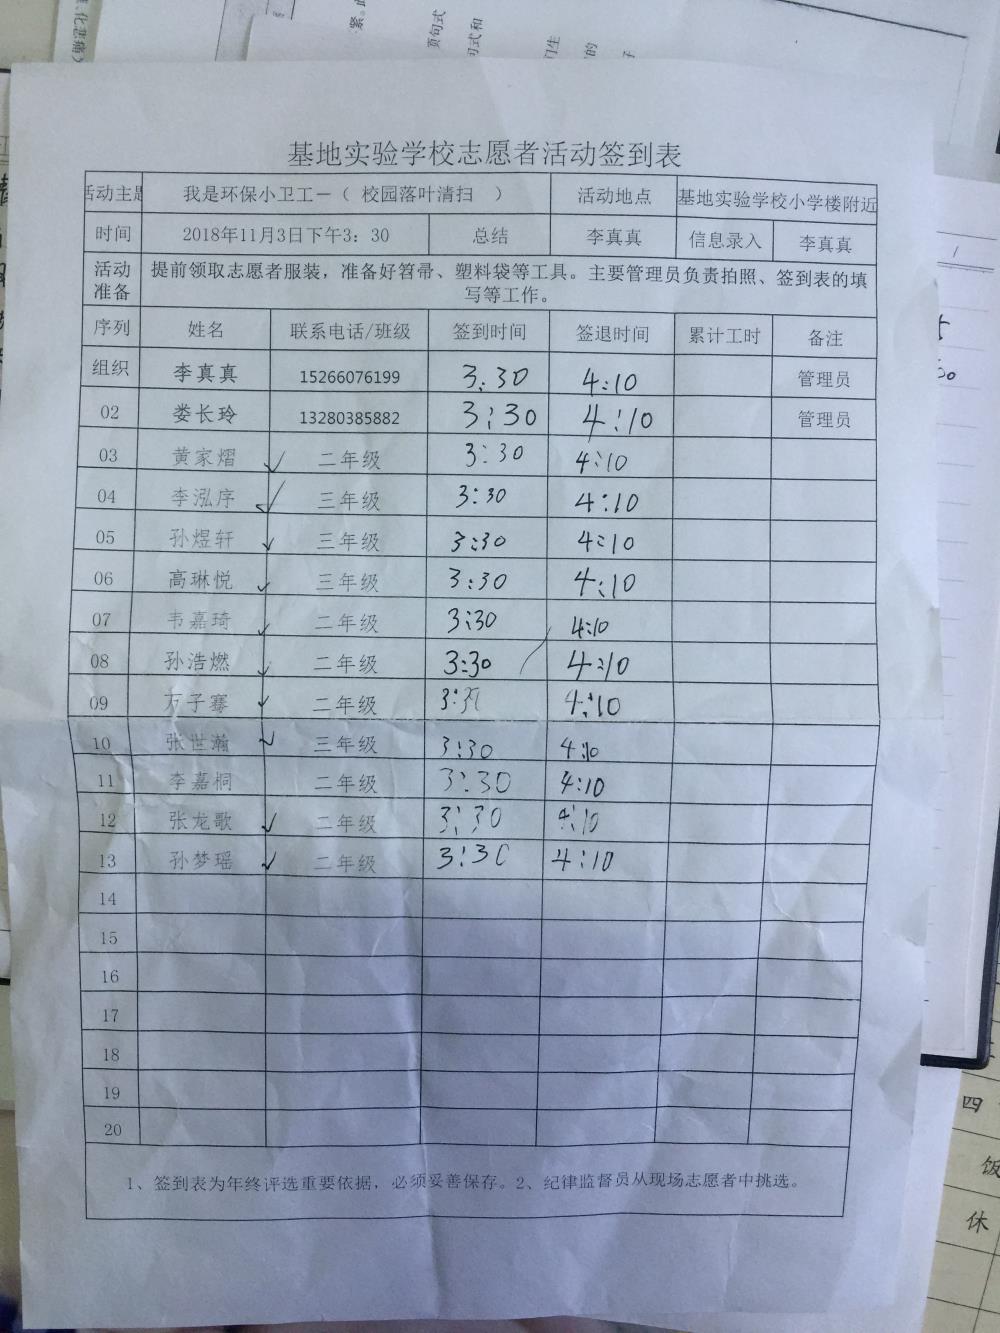 基地实验学校志愿者活动签到表
活动主题 我是环保小卫工－（ 校园落叶清扫 ） 活动地点 基地实验学校小学楼附近
时间 2018年11月3日下午3：30 总结 李真真 信息录入 李真真
活动准备 提前领取志愿者服装，准备好笤帚、塑料袋等工具。主要管理员负责拍照、签到表的填
写等工作。
序列 姓名 联系电话/班级 签到时间 签退时间 累计工时 备注
组织 李真真 15266076199 3:30 4:10 管理员
02 娄长玲 13280385882 3:30 4:10 管理员
03 黄家熠 ✓ 二年级 3:30 4:10
04 李泓序 ✓ 三年级 3:30 4:10
05 孙煜轩 ✓ 三年级 3:30 4:10
06 高琳悦 ✓ 三年级 3:30 4:10
07 韦嘉琦 ✓ 二年级 3:30 4:10
08 孙浩燃 ✓ 二年级 3:30 4:10
09 万子骞 ✓ 二年级 4:10
10 张世瀚 ✓ 三年级 3:30 4:10
11 李嘉桐 二年级 3:30 4:10
12 张龙歌 ✓ 二年级 3:30 4:10
13 孙梦瑶 ✓ 二年级 3:30 4:10
14
15
16
17
18
19
20
1、签到表为年终评选重要依据，必须妥善保存。2、纪律监督员从现场志愿者中挑选。
四
饭
休